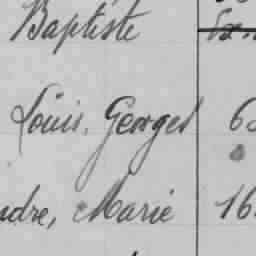 Baptiste
Louis, Georges 6
ndre, Marie 16